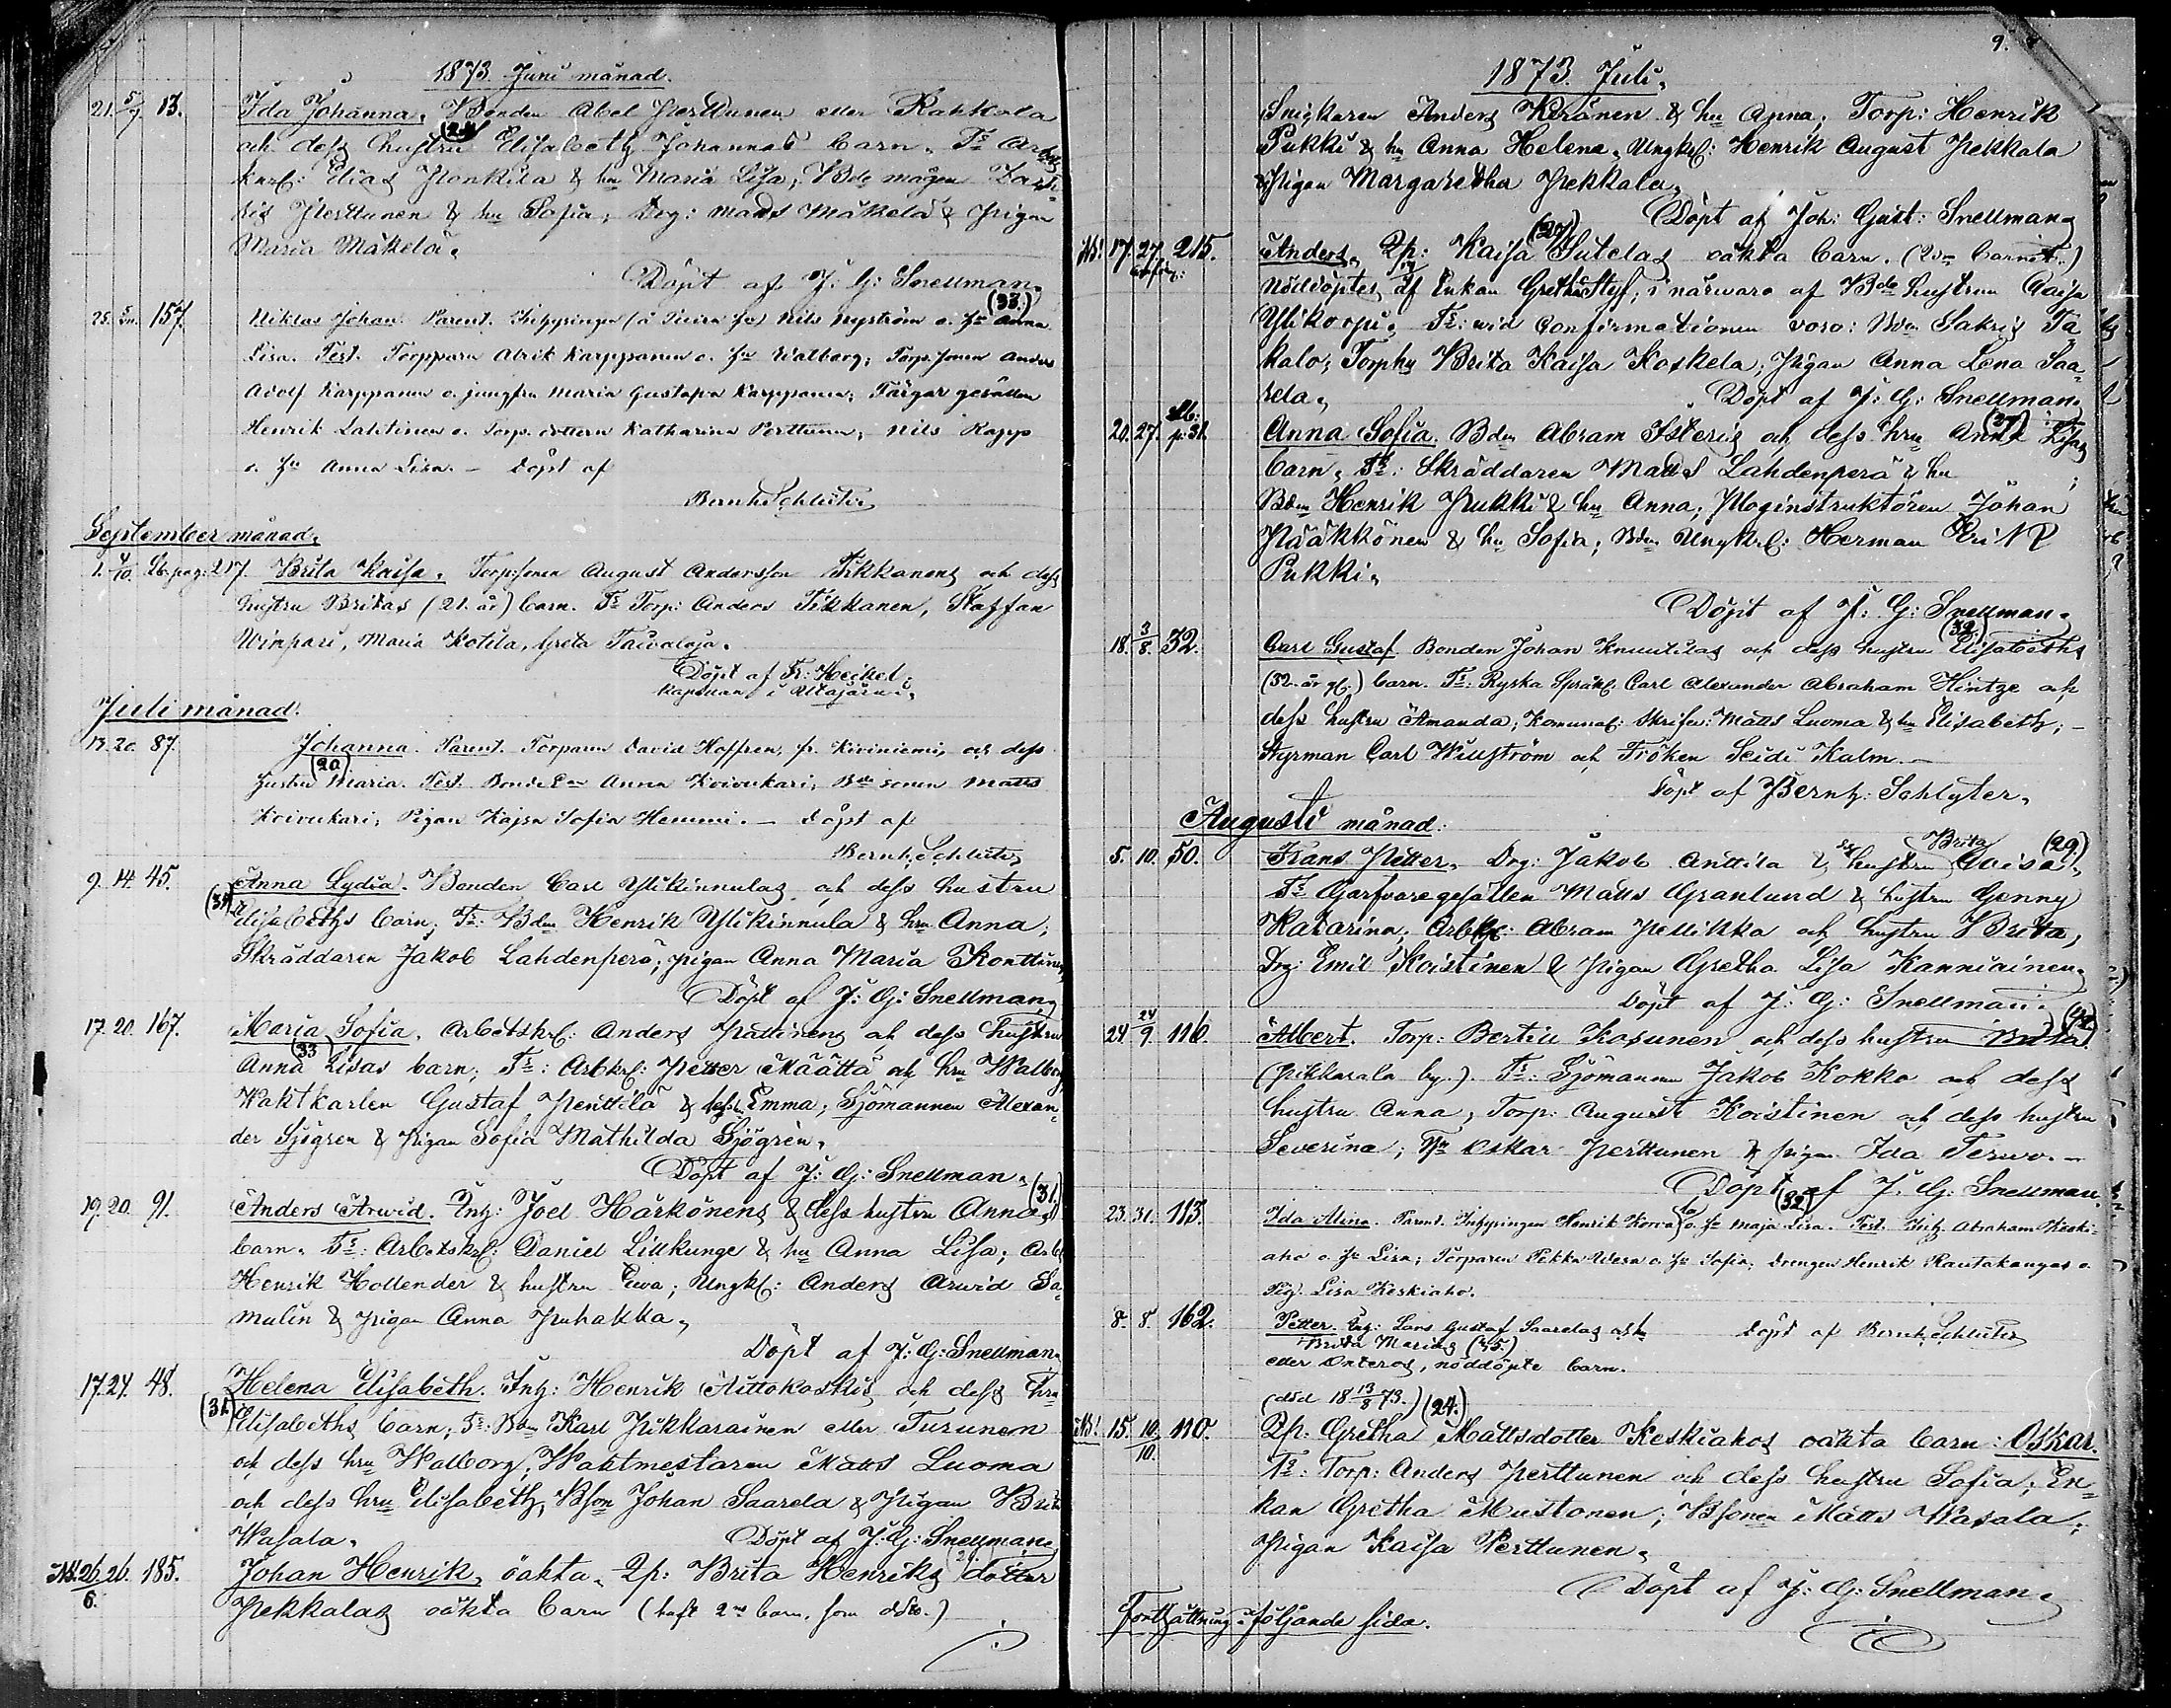 1873. Juni månad.
21. 5/7 13. Ida Johanna. Bonden Abel Perttunen eller Rahkola
och dess hustru (24) Elisabeth Johannas barn. Ts Arbets
karl: Elias Ponkila & hu Maria Lisa, Bde mågen Zach
ris Perttunen & hu Sofia; Drg: Matts Mäkelä & Pigan
Maria Mäkelä.
Döpt af J: G: Snellman.
25. 157. Niklas Johan. Parent. Inhysingen Nils Nyström o. hu Anna (33.)
Lisa. Test. Torpparn Alrik Karppanen o. hu Walborg, Torp. sonen Anders
Adolf Karppanen o. jungfru Maria Gustafva Karppanen; Färgar gesällen
Henrik Lahtinen o. Torp. dottern Katharina Perttunen, Nils Kopps
o. hu Anna Lisa. - Döpt af
Bernh. Schluter
September månad.
1. 4/10. Lb. pag: 217. Brita Kaisa. Torpsonen August Andersson Tikkanens och dess
hustru Britas (21. år) barn. Ts Torp: Anders Tikkanen, Staffan
Wimpari, Maria Kotila, Greta Taivaloja.
Döpt af Fr: Heikel,
Kapellan i Utajärvi.
Juli månad.
13. 20. 87. Johanna. Parent. Torparen David Hoffren, fr. Kiviniemi, och dess
(20)
hustru Maria. Test. Bonde Anna Koivukari, Bde sonen Matts
Koivukari, Pigan Kajsa Sofia Hemmi. - Döpt af
Bernh. Schluter
9. 14. 45. Anna Lydia. Bonden Carl Ylikinnulas och dess hustru
Elisabeths barn; Ts: Bden Henrik Ylikinnula & hru Anna;
Skräddaren Jakob Lahdenperä; pigan Anna Maria Konttinen
Döpt af J: G: Snellman.
17. 20. 167. Maria Sofia. Arbetskrl: Anders Pättinens och dess hustru
Anna (33) Lisas barn; Ts: Arbkrl: Petter Määttä och hru Walborg
Waktkarlen Gustaf Penttilä & Emma; Sjömannen Alexan-
der Sjögren & Pigan Sofia Mathilda Sjögren.
Döpt af J: G: Snellman.
19. 20. 91. Anders Arwid. Inh: Joel Härkönens & dess hustru Annas (31.)
barn. Ts: Arbetskrl: Daniel Lillkunge & hu Anna Lisa; Arb
Henrik Hollender & hustru Ewa; Ungkl: Anders Arwid Sa-
mulin & pigan Anna Puhakka.
Döpt af J: G: Snellman.
17. 27. 48. Helena Elisabeth. Inh: Henrik Aittokoskis och dess hru
(31.) Elisabeths barn; Ts: Bdn Karl Pikkarainen eller Turunen
och dess hru Walborg; Waktmestaren Matts Luoma
och dess hru Elisabeth, Bson Johan Saarela & Pigan Brita
Wasala. Döpt af J: G: Snellman.
NB. 26/6. 26. 185. Johan Henrik, oäkta. Qp: Brita Henriks dotter
Pekkalas oäkta barn (haft 2ne barn, som dött.)
9.
1873. Juli.
Snickaren Anders Keränen & hu Anna; Torp: Henrik
Pukki & hu Anna Helena, Ungkrl: Henrik August Pekkala
& Pigan Margaretha Pekkala.
Döpt af Joh: Gust: Snellman
NB! 17. 27. 215. Anders, Qp: Kaisa Sutelas oäkta barn. (2dra barnet.)
Nöddöptes af Enkan Gretha Styf, i närwaro af Bde hustrun Caisa
Ylikorpi. Ts: wid Confirmationen woro: Bdn Sakris Ta
kalo; Torphu Brita Kaisa Koskela; Pigan Anna Lena Saa-
rela. Döpt af J: G: Snellman.
20. 27. Lb: p: 31. Anna Sofia. Bden Abram Isteris och dess hru Anna (27) Lisas
barn, Ts: Skräddaren Matts Lahdenperä & hu
Bden Henrik Pukki & hu Anna; Ploginstruktören Johan
Pääkkönen & hu Sofia; Bdn Ungkrl: Herman
Pukki.
Döpt af J: G: Snellman.
18. 3/8. 32. Carl Gustaf. Bonden Johan Knuutilas och dess hustru Elisabeths (32.)
(32. år gl.) barn. Ts: Ryska Språkl. Carl Alexander Abraham Hintze och
dess hustru Amanda; Komunal: Skrifv: Matts Luoma & hu Elisabeth; -
Styrman Carl Willström och Fröken Seidi Kalm. -
Döpt af Bernh: Schlyter.
Augusti månad.
5. 10. 50. Frans Petter, Drg: Jakob Anttila & hustru Brita Caisa. (29.)
Ts Garfvaregesällen Matts Granlund & hustru Genny
Katarina; Arbkrl: Abram Pellikka och hustru Brita,
Drg: Emil Koistinen & Pigan Gretha Lisa Kanniainen.
Döpt af J: G: Snellman.
24 24/9 116. Albert. Torp: Bertil Kosunen och dess hustru Brita (42)
(Pikkarala by.). Ts: Sjömannen Jakob Kokko och dess
hustru Anna, Torp: August Koistinen och dess hustru
Severina; Oskar Perttunen & pigan Ida Terwo. -
Döpt af J. G: Snellman.
23. 31. 113. Ida Alina. Parent. Inhysingen Henrik Korva o. hu Maja Lisa. (32) Test. Inh. Abraham Keski-
aho o. hu Lisa; Torparen Pekka Wesa o. hu Sofia, Drengen Henrik Rautakangas o.
Pig. Lisa Keskiaho.
8. 8. 162. Petter. Inh: Lars Gustaf Saarelas och hu Döpt af Bernh. Schluter
Brita Marias (35.)
eller Onteros, nöddöpte barn.
(död 18 13/8 73.) (24.)
NB! 15. 10/10. 110. Qp: Gretha Mattsdotter Keskiahos oäkta barn: Oskar.
Ts: Torp: Anders Perttunen och dess hustru Sofia; En-
kan Gretha Mustonen; Bsonen Matts Wasala;
Pigan Kaisa Perttunen.
Döpt af J: G: Snellman.
Fortsättning å följande sida.